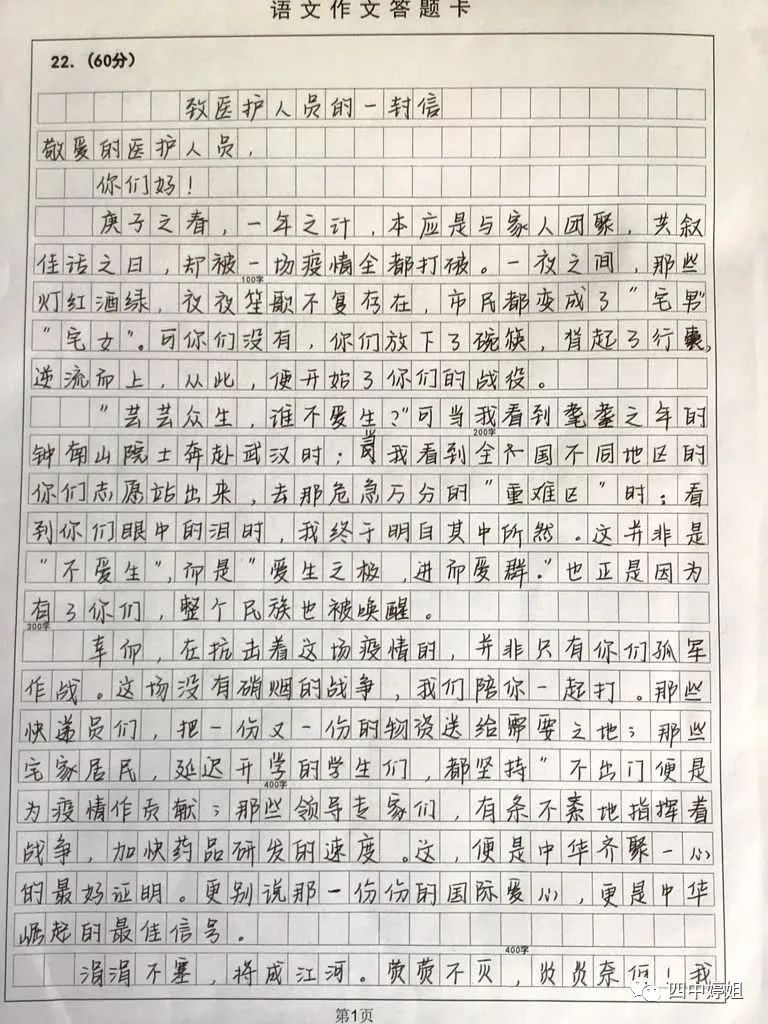 语文作文答题卡
22.（60分）
致医护人员的一封信
敬爱的医护人员，
你们好！
庚子之春，一年之计，本应是与家人团聚，共叙
佳话之日，却被一场疫情全都打破。一夜之间，那些
100字
灯红酒绿，夜夜笙歌不复存在，市民都变成了"宅男"
"宅女"。可你们没有，你们放下了碗筷，背起了行囊，
逆流而上，从此，便开始了你们的战役。
"芸芸众生，谁不爱生？"可当我看到耄耋之年的
200字
钟南山院士奔赴武汉时；当我看到全国不同地区的
你们志愿站出来，去那危急万分的"重难区"时；看
到你们眼中的泪时，我终于明白其中所然。这并非是
"不爱生"，而是"爱生之极，进而爱群。"也正是因为
有了你们，整个民族也被唤醒。
300字
幸仰，在抗击着这场疫情的，并非只有你们孤军
作战。这场没有硝烟的战争，我们陪你一起打。那些
快递员们，把一份又一份的物资送给需要之地；那些
宅家居民，延迟开学的学生们，都坚持"不出门便是
400字
为疫情作贡献；那些领导专家们，有条不紊地指挥着
战争，加快药品研发的速度。这，便是中华齐聚一心
的最好证明。更别说那一份份的国际爱心，更是中华
崛起的最佳信号。
400字
涓涓不塞，将成江河。荧荧不灭，炎炎奈何！我
四中婷姐
第1页